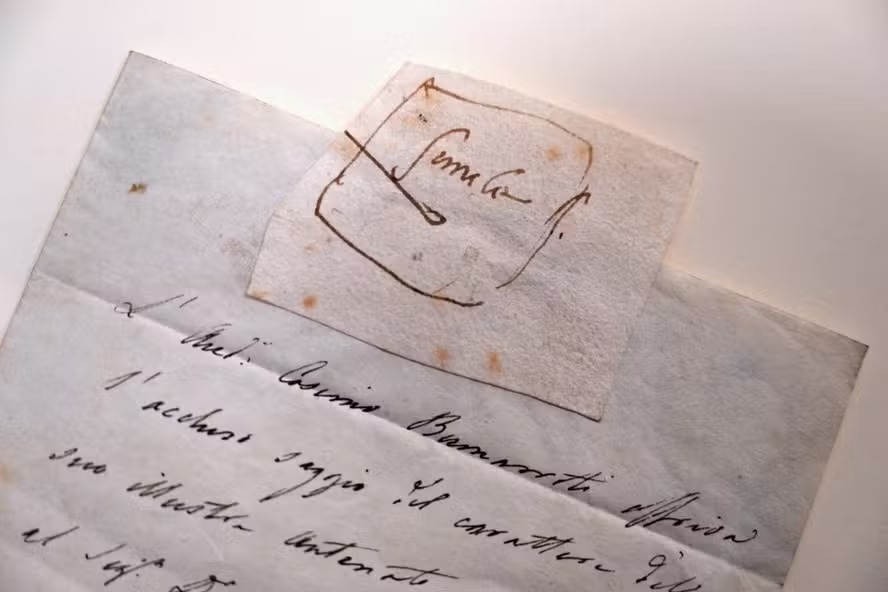 Simile
L'
Aud.: Cosimo Buonarroti offriva
l'accluso saggio del carattere dell
suo illustre antenato
al Sig.r D.r